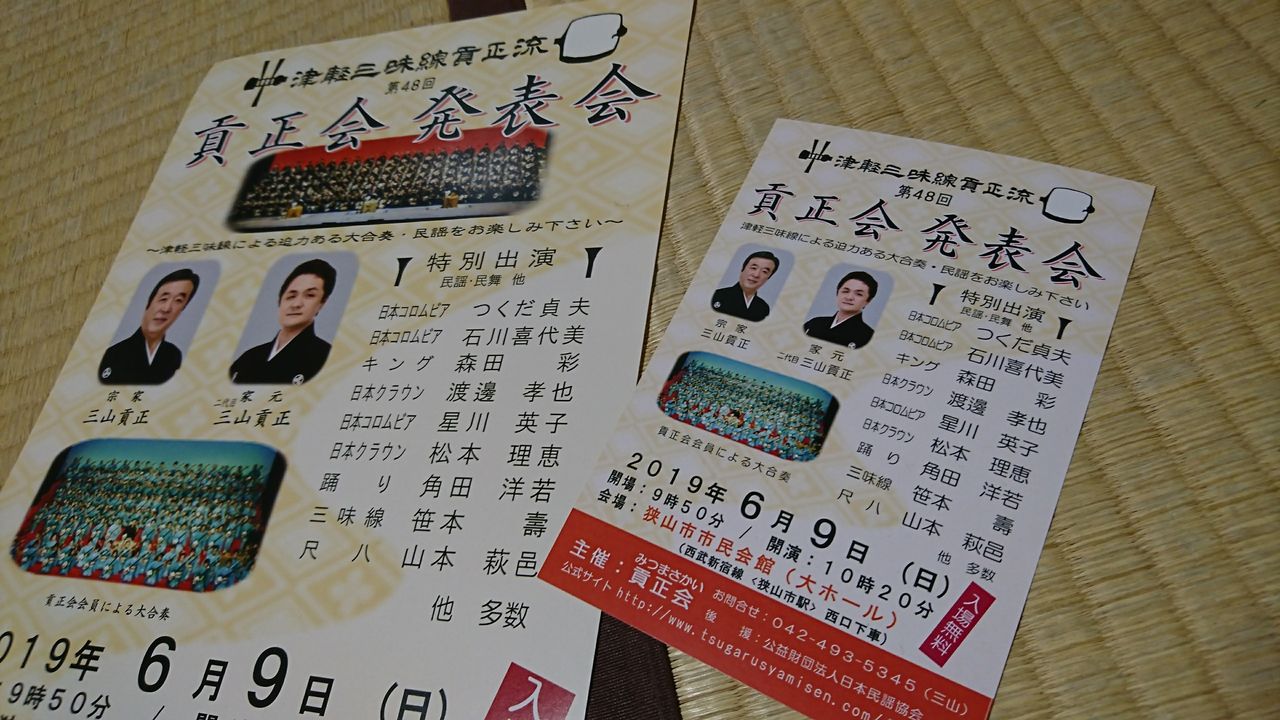 津軽三味線貢正流
第48回
貢正会 発表会
～津軽三味線による迫力ある大合奏・民謡をお楽しみ下さい～
特別出演
民謡・民舞 他
日本コロムビア つくだ貞夫
日本コロムビア 石川喜代美
キング 森田 彩
日本クラウン 渡邊 孝也
日本コロムビア 星川 英子
日本クラウン 松本 理恵
踊り 角田 洋若
三味線 笹本 壽
尺八 山本 萩邑
他 多数
宗家
三山貢正
家元
二代目 三山貢正
貢正会会員による大合奏
019年 6月9日(日)
9時50分 /
入
津軽三味線貢正流
第48回
貢正会 発表会
津軽三味線による迫力ある大合奏・民謡をお楽しみ下さい
特別出演
民謡・民舞 他
日本コロムビア つくだ貞夫
日本コロムビア 石川喜代美
キング 森田 彩
日本クラウン 渡邊 孝也
日本コロムビア 星川 英子
日本クラウン 松本 理恵
踊り 角田 洋若
三味線 笹本 壽
尺八 山本 萩邑
他 多数
宗家
三山貢正
家元
二代目 三山貢正
貢正会会員による大合奏
2019年6月9日(日)
開場:9時50分 / 開演:10時20分
会場:狭山市市民会館(大ホール)
(西武新宿線〈狭山市駅〉西口下車)
入場無料
みつまさかい
主催:貢正会 お問合せ:042-493-5345(三山)
後援:公益財団法人日本民謡協会
公式サイト http://www.tsugarusyamisen.com/